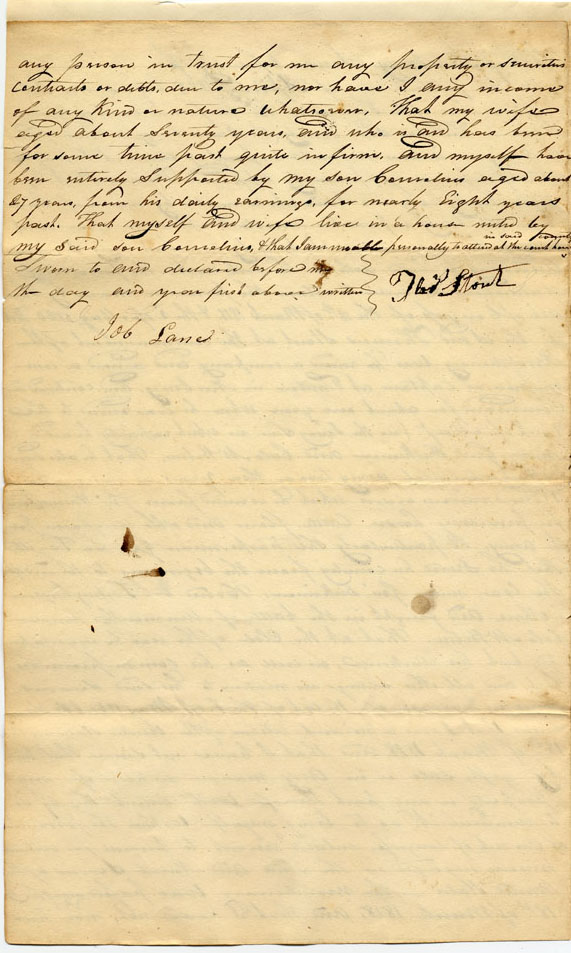 any person in trust for me any property or securities
contracts or debts, due to me, nor have I any income
of any kind or nature whatsoever, That my wife
aged about Seventy years, and who is and has been
for some time past quite infirm, and myself have
been entirely Supported by my son Cornelius aged about
27 years, from his daily earnings, for nearly Eight years
past. That myself and wife live in a house rented by
in said County
my said son Cornelius, & that I am unable personally to attend at the court house
Sworn to and declared before me
the day and year first above written
Thos Stout
Job Lane